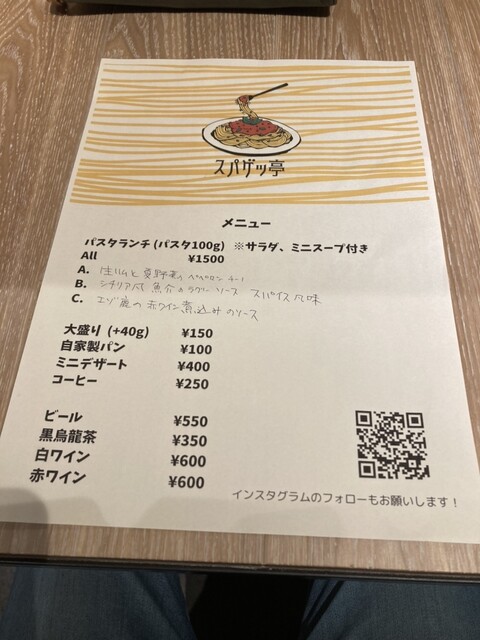 スパゲッ亭
メニュー
パスタランチ (パスタ100g) ※サラダ、ミニスープ付き
All ¥1500
A. 生ハムと夏野菜のペペロンチーノ
B. シチリア風 魚介のラグーソース スパイス風味
C. エゾ鹿の赤ワイン煮込みのソース
大盛り (+40g) ¥150
自家製パン ¥100
ミニデザート ¥400
コーヒー ¥250
ビール ¥550
黒烏龍茶 ¥350
白ワイン ¥600
赤ワイン ¥600
インスタグラムのフォローもお願いします！